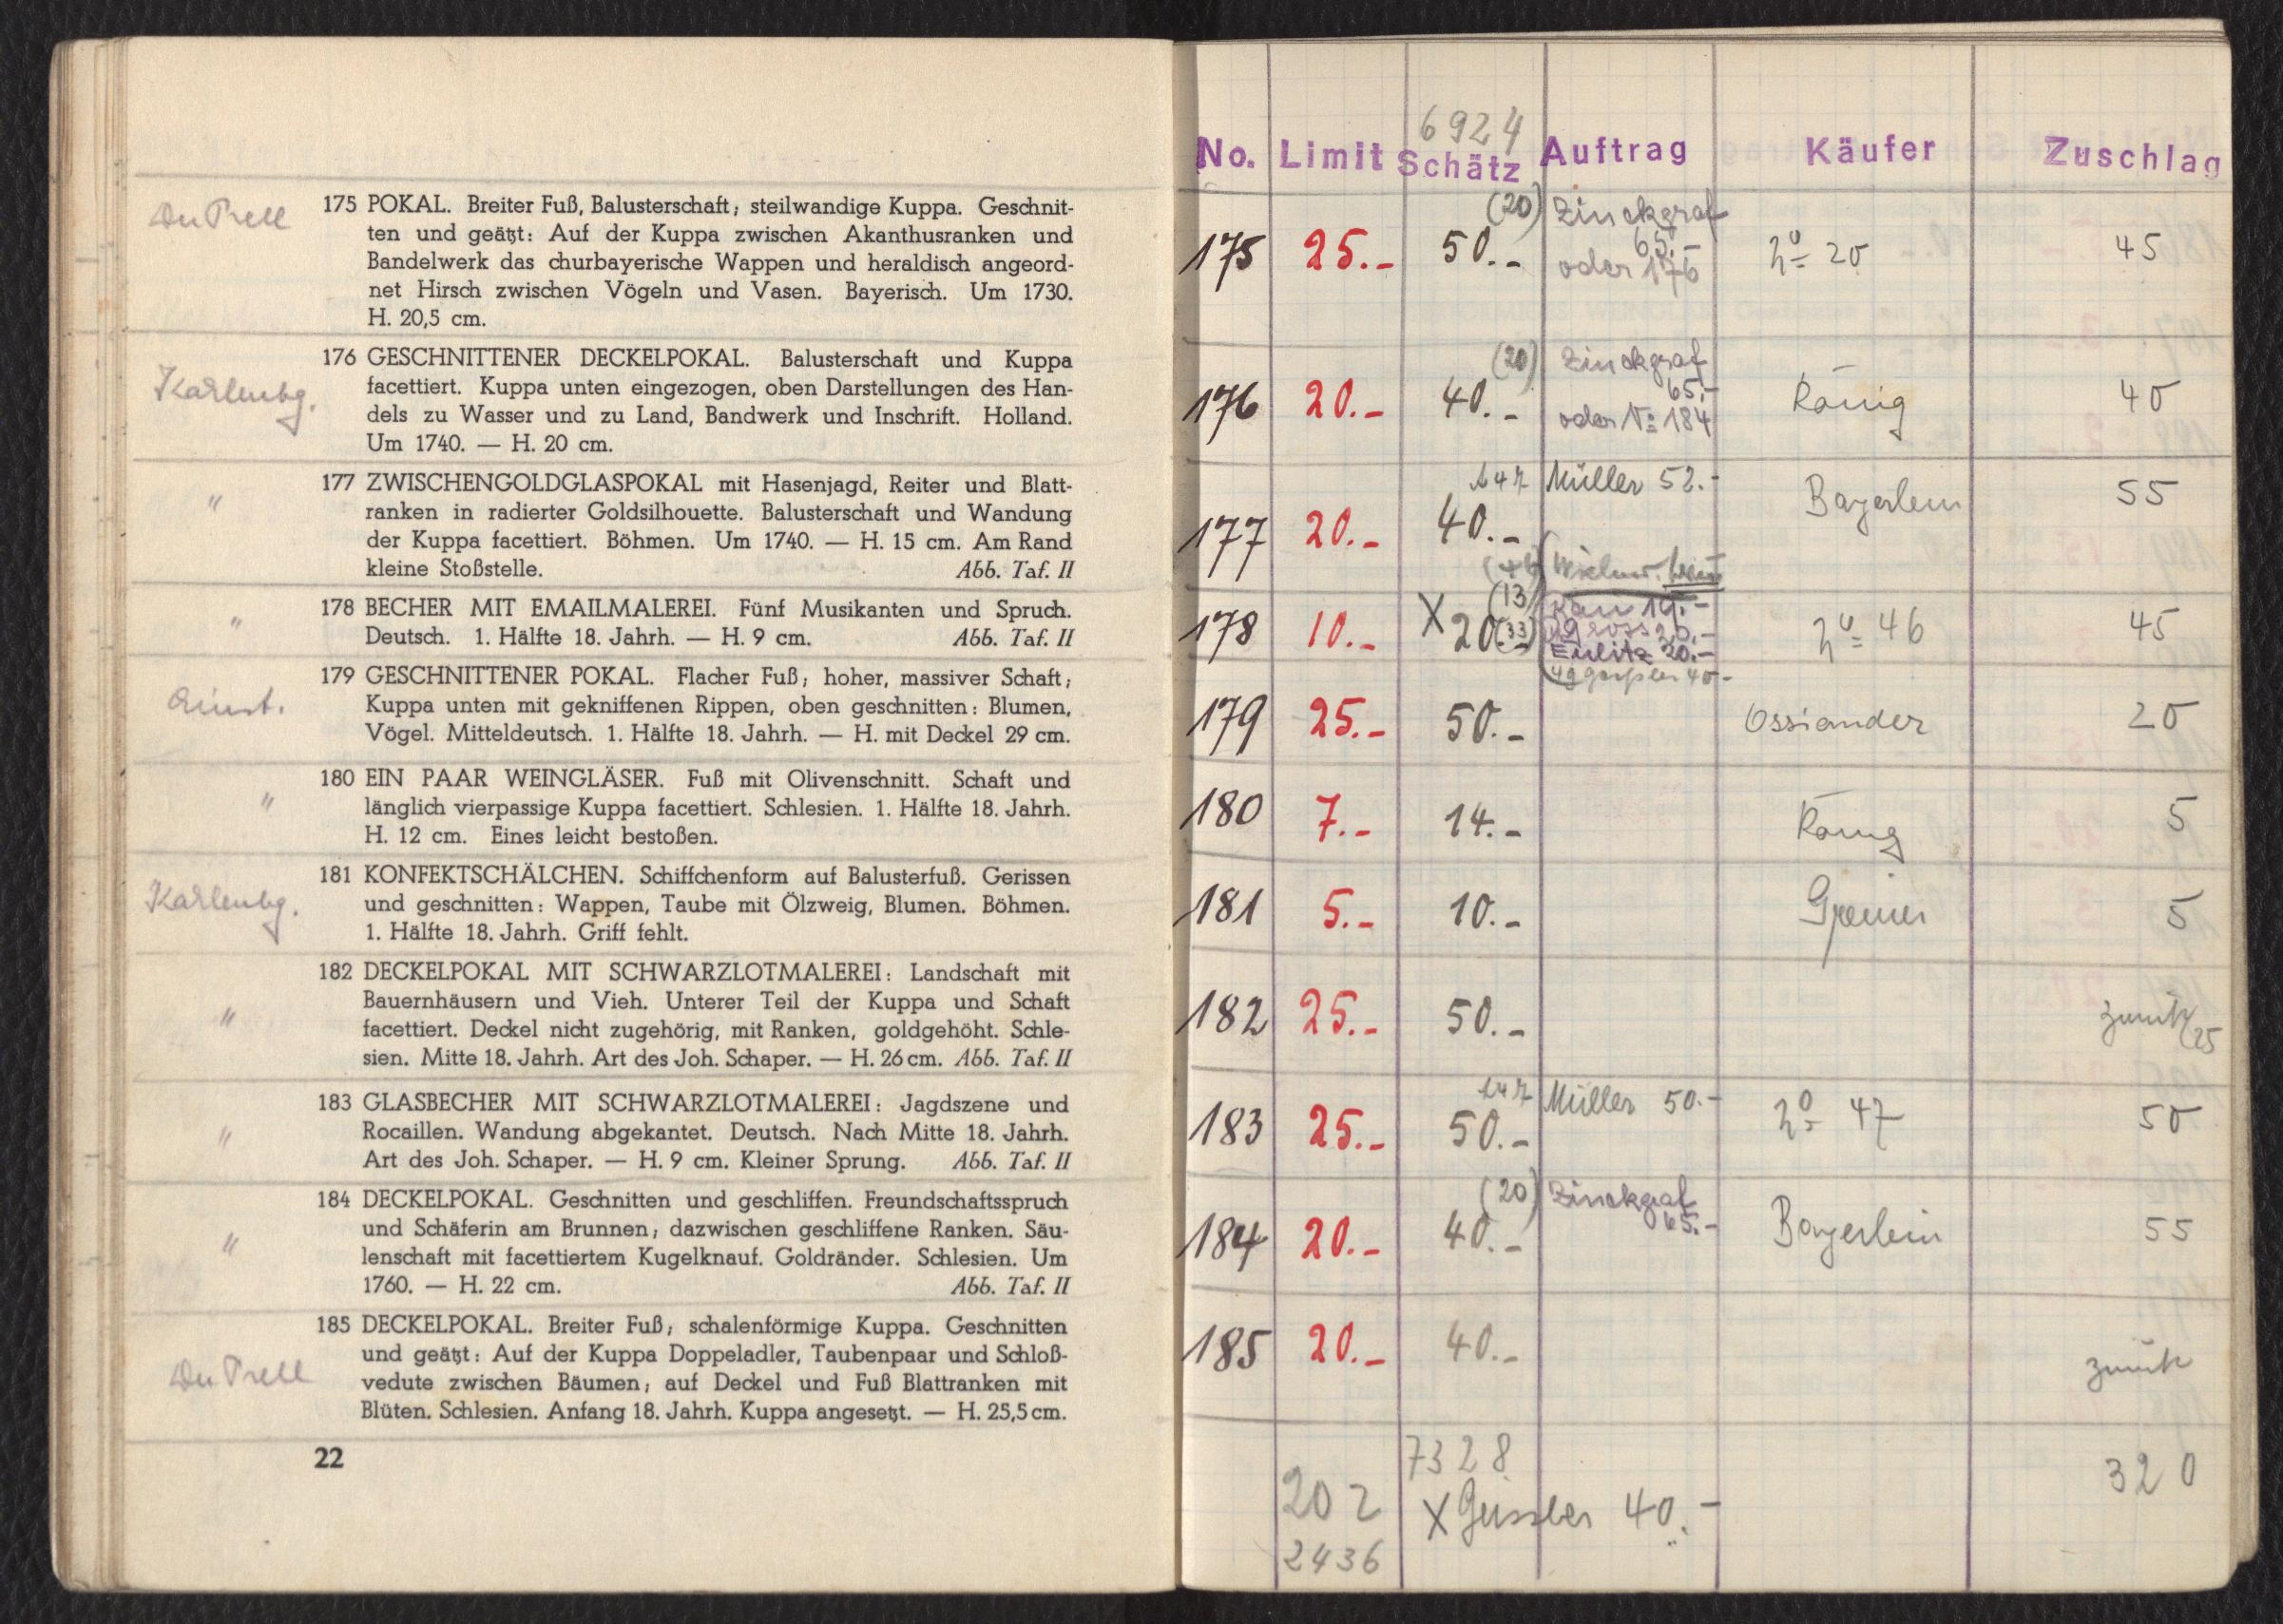 175 POKAL. Breiter Fuß, Balusterschaft; steilwandige Kuppa. Geschnit-
ten und geätzt: Auf der Kuppa zwischen Akanthusranken und
Bandelwerk das churbayerische Wappen und heraldisch angeord-
net Hirsch zwischen Vögeln und Vasen. Bayerisch. Um 1730.
H. 20,5 cm.
Karlenbg.
176 GESCHNITTENER DECKELPOKAL. Balusterschaft und Kuppa
facettiert. Kuppa unten eingezogen, oben Darstellungen des Han-
dels zu Wasser und zu Land, Bandwerk und Inschrift. Holland.
Um 1740. — H. 20 cm.
"
177 ZWISCHENGOLDGLASPOKAL mit Hasenjagd, Reiter und Blatt-
ranken in radierter Goldsilhouette. Balusterschaft und Wandung
der Kuppa facettiert. Böhmen. Um 1740. — H. 15 cm. Am Rand
kleine Stoßstelle. Abb. Taf. II
"
178 BECHER MIT EMAILMALEREI. Fünf Musikanten und Spruch.
Deutsch. 1. Hälfte 18. Jahrh. — H. 9 cm. Abb. Taf. II
179 GESCHNITTENER POKAL. Flacher Fuß; hoher, massiver Schaft;
Kuppa unten mit gekniffenen Rippen, oben geschnitten: Blumen,
Vögel. Mitteldeutsch. 1. Hälfte 18. Jahrh. — H. mit Deckel 29 cm.
"
180 EIN PAAR WEINGLÄSER. Fuß mit Olivenschnitt. Schaft und
länglich vierpassige Kuppa facettiert. Schlesien. 1. Hälfte 18. Jahrh.
H. 12 cm. Eines leicht bestoßen.
Karlenbg.
181 KONFEKTSCHÄLCHEN. Schiffchenform auf Balusterfuß. Gerissen
und geschnitten: Wappen, Taube mit Ölzweig, Blumen. Böhmen.
1. Hälfte 18. Jahrh. Griff fehlt.
"
182 DECKELPOKAL MIT SCHWARZLOTMALEREI: Landschaft mit
Bauernhäusern und Vieh. Unterer Teil der Kuppa und Schaft
facettiert. Deckel nicht zugehörig, mit Ranken, goldgehöht. Schle-
sien. Mitte 18. Jahrh. Art des Joh. Schaper. — H. 26 cm. Abb. Taf. II
"
183 GLASBECHER MIT SCHWARZLOTMALEREI: Jagdszene und
Rocaillen. Wandung abgekantet. Deutsch. Nach Mitte 18. Jahrh.
Art des Joh. Schaper. — H. 9 cm. Kleiner Sprung. Abb. Taf. II
"
184 DECKELPOKAL. Geschnitten und geschliffen. Freundschaftsspruch
und Schäferin am Brunnen; dazwischen geschliffene Ranken. Säu-
lenschaft mit facettiertem Kugelknauf. Goldränder. Schlesien. Um
1760. — H. 22 cm. Abb. Taf. II
185 DECKELPOKAL. Breiter Fuß; schalenförmige Kuppa. Geschnitten
und geätzt: Auf der Kuppa Doppeladler, Taubenpaar und Schloß-
vedute zwischen Bäumen; auf Deckel und Fuß Blattranken mit
Blüten. Schlesien. Anfang 18. Jahrh. Kuppa angesetzt. — H. 25,5 cm.
22
6924
No. Limit Schätz Auftrag Käufer Zuschlag
(20) Zinckgraf
65.-
175 25.- 50.- oder 176 20 45
(20) Zinckgraf
65.-
176 20.- 40.- oder No 184 König 40
147 Müller 52.-
177 20.- 40.- Bayerlein 55
(13)
178 10.- X 20.- (33) 46 45
Eulitz 20.-
179 25.- 50.- Ossiander 20
180 7.- 14.- König 5
181 5.- 10.- Greiner 5
182 25.- 50.- zurück 25
147 Müller 50.-
183 25.- 50.- 47 50
(20) Zinckgraf
65.-
184 20.- 40.- Bayerlein 55
185 20.- 40.- zurück
7328 320
202 X Geissler 40.-
2436